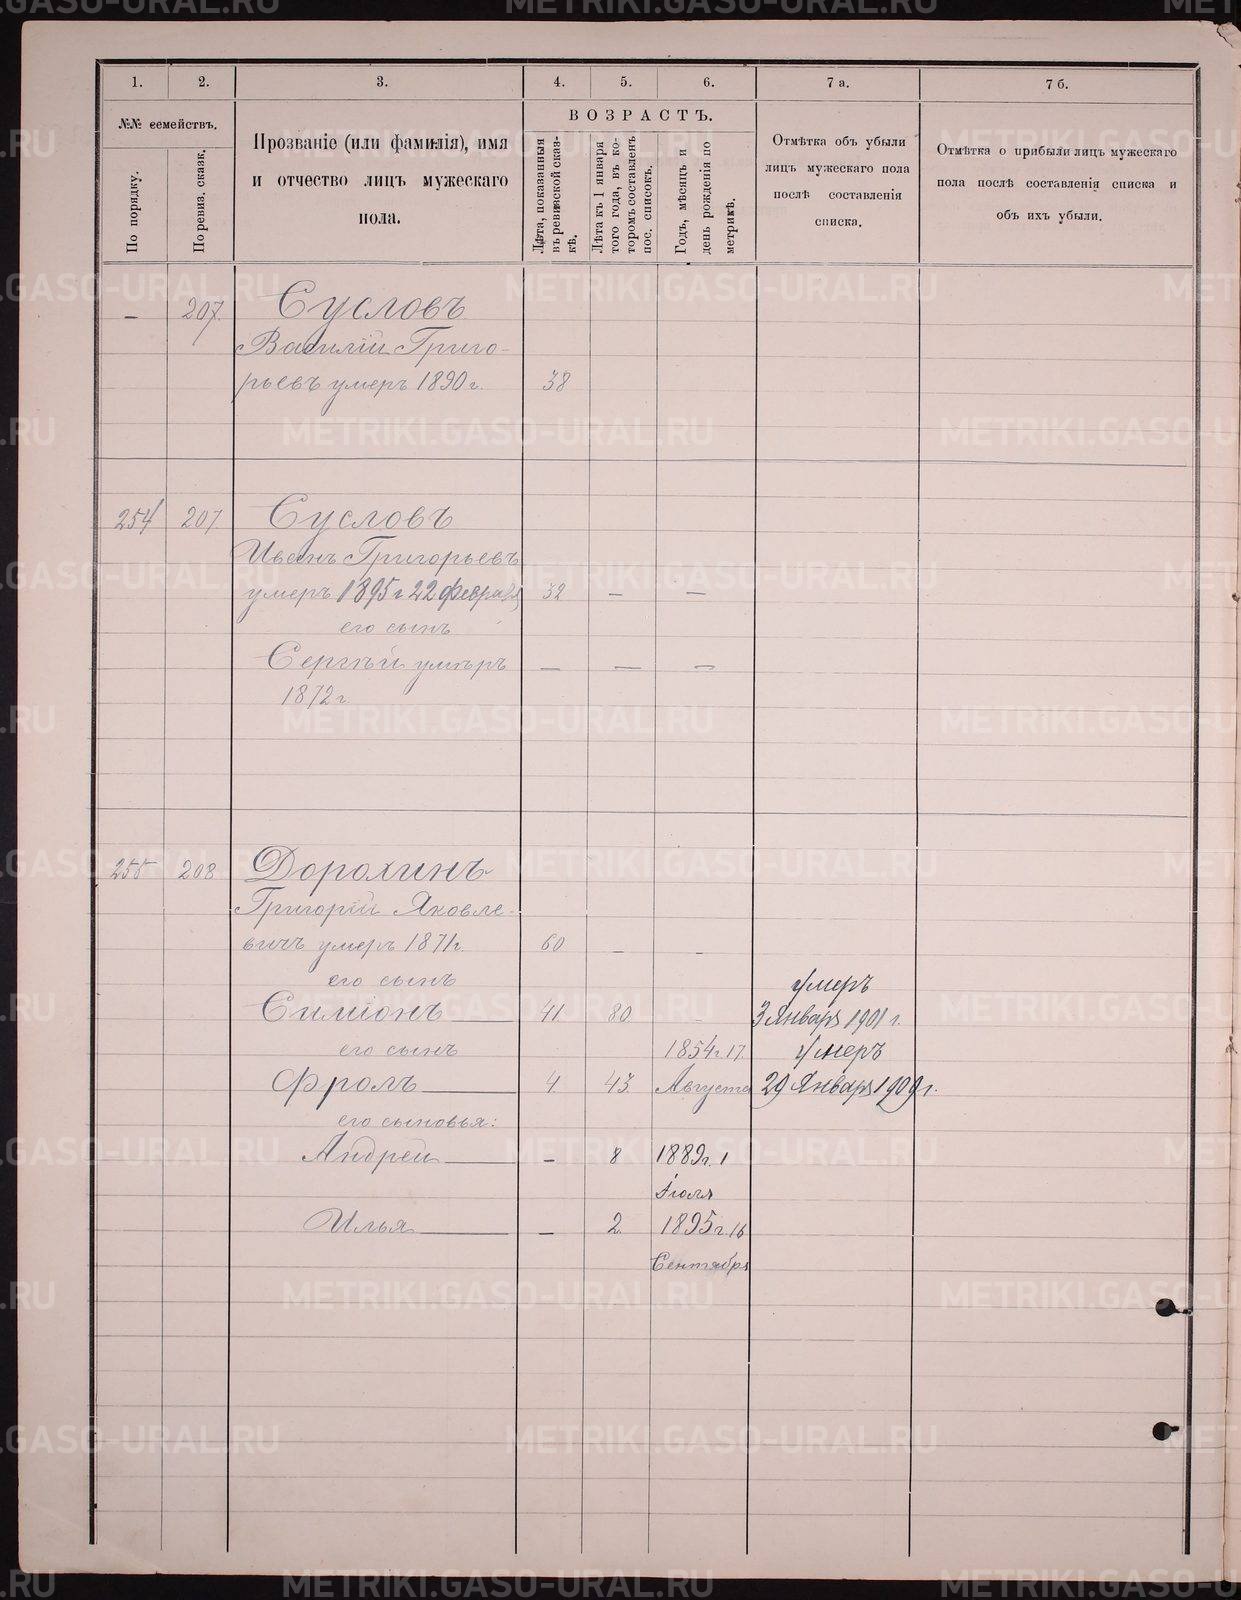 1.
2.
3.
4.
5.
6.
7 а.
7 б.
№№ семействъ.
По порядку.
По ревиз. сказк.
Прозваніе (или фамилія), имя
и отчество лицъ мужескаго
пола.
ВОЗРАСТЪ.
Лѣта, показанныя
въ ревизской сказ-
кѣ.
Лѣта къ 1 января
того года, въ ко-
торомъ составленъ
пос. списокъ.
Годъ, мѣсяцъ и
день рожденія по
метрикѣ.
Отмѣтка объ убыли
лицъ мужескаго пола
послѣ составленія
списка.
Отмѣтка о прибыли лицъ мужескаго
пола послѣ составленія списка и
объ ихъ убыли.
— 207. Сусловъ
Василій Григо-
рьевъ умеръ 1890 г. 38
254 207 Сусловъ
Иванъ Григорьевъ
умеръ 1895 г 22 февраля 32 — —
его сынъ
Сергѣй умеръ — — —
1872 г.
255 208 Дорохинъ
Григорій Яковле-
вичъ умеръ 1871 г. 60 — -
его сынъ умеръ
Симіонъ 41 80 - 3 Января 1901 г.
его сынъ 1854 г. 17 умеръ
Фролъ 4 43 Августа 29 Января 1909 г.
его сыновья:
Андрей — 8 1889 г. 1
Іюля
Илья — 2 1895 г. 16
Сентября
METRIKI.GASO-URAL.RU